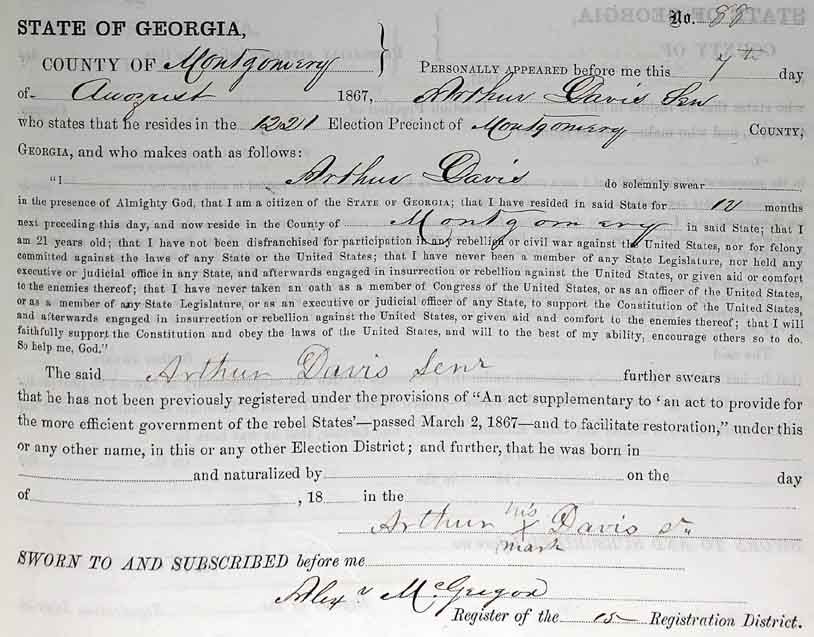 No. 88
STATE OF GEORGIA,
COUNTY OF Montgomery } PERSONALLY APPEARED before me this 7th day
of August 1867, Arthur Davis Sen
who states that he resides in the 1221 Election Precinct of Montgomery COUNTY,
GEORGIA, and who makes oath as follows:
"I Arthur Davis do solemnly swear
in the presence of Almighty God, that I am a citizen of the STATE OF GEORGIA; that I have resided in said State for 12 months
next preceding this day, and now reside in the County of Montgomery in said State; that I
am 21 years old; that I have not been disfranchised for participation in any rebellion or civil war against the United States, nor for felony
committed against the laws of any State or the United States; that I have never been a member of any State Legislature, nor held any
executive or judicial office in any State, and afterwards engaged in insurrection or rebellion against the United States, or given aid or comfort
to the enemies thereof; that I have never taken an oath as a member of Congress of the United States, or as an officer of the United States,
or as a member of any State Legislature, or as an executive or judicial officer of any State, to support the Constitution of the United States,
and afterwards engaged in insurrection or rebellion against the United States, or given aid and comfort to the enemies thereof; that I will
faithfully support the Constitution and obey the laws of the United States, and will to the best of my ability, encourage others so to do.
So help me, God."
The said Arthur Davis Senr further swears
that he has not been previously registered under the provisions of "An act supplementary to 'an act to provide for
the more efficient government of the rebel States'—passed March 2, 1867—and to facilitate restoration," under this
or any other name, in this or any other Election District; and further, that he was born in
and naturalized by on the day
of , 18 in the
Arthur his X mark Davis Sr
SWORN TO AND SUBSCRIBED before me
Alexr McGregor
Register of the 15 Registration District.